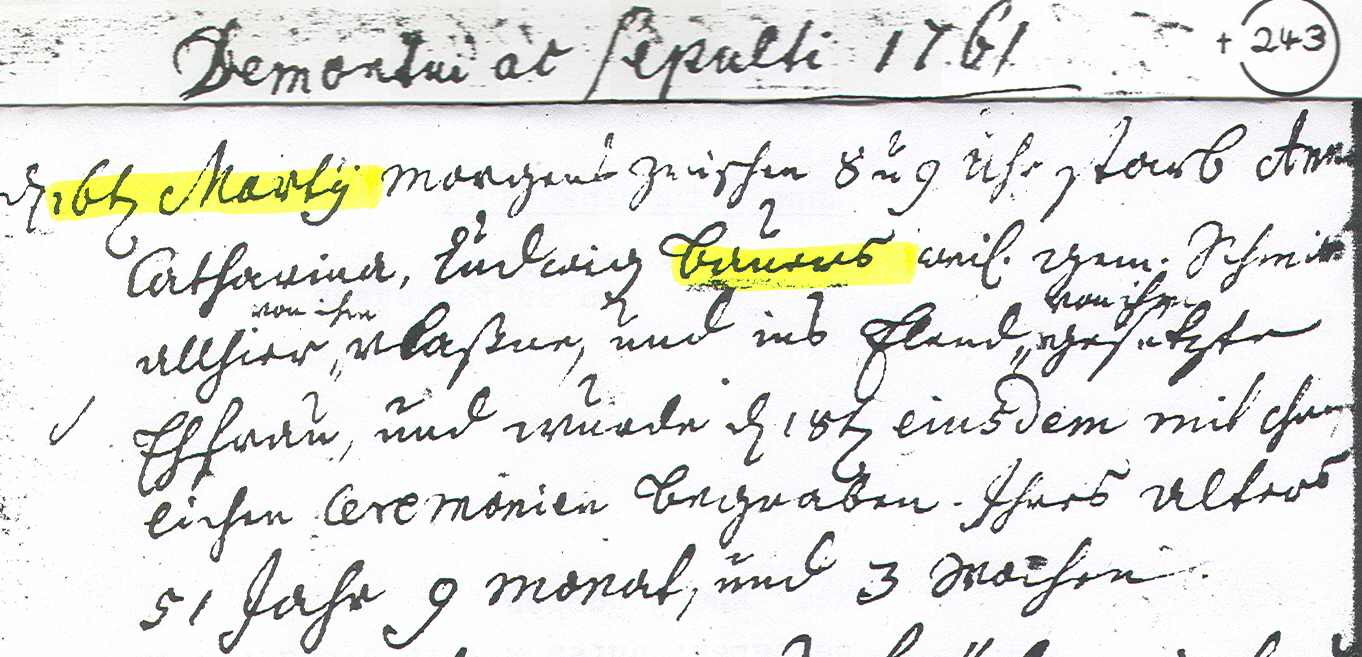 Demortui ac Sepulti 1761
+ 243
d. 16t. Martij morgens zwischen 8 u 9 Uhr starb Anna
Catharina, Ludwig Bauers weil. gem. Schmit
allhier, von ihm vlaßne, und ins Elend, von ihm gesetzte
Ehfrau, und wurde d. 18t. eiusdem mit chr
lichen Ceremonien begraben. Ihres alters
51 Jahr 9 monat, und 3 Wochen.